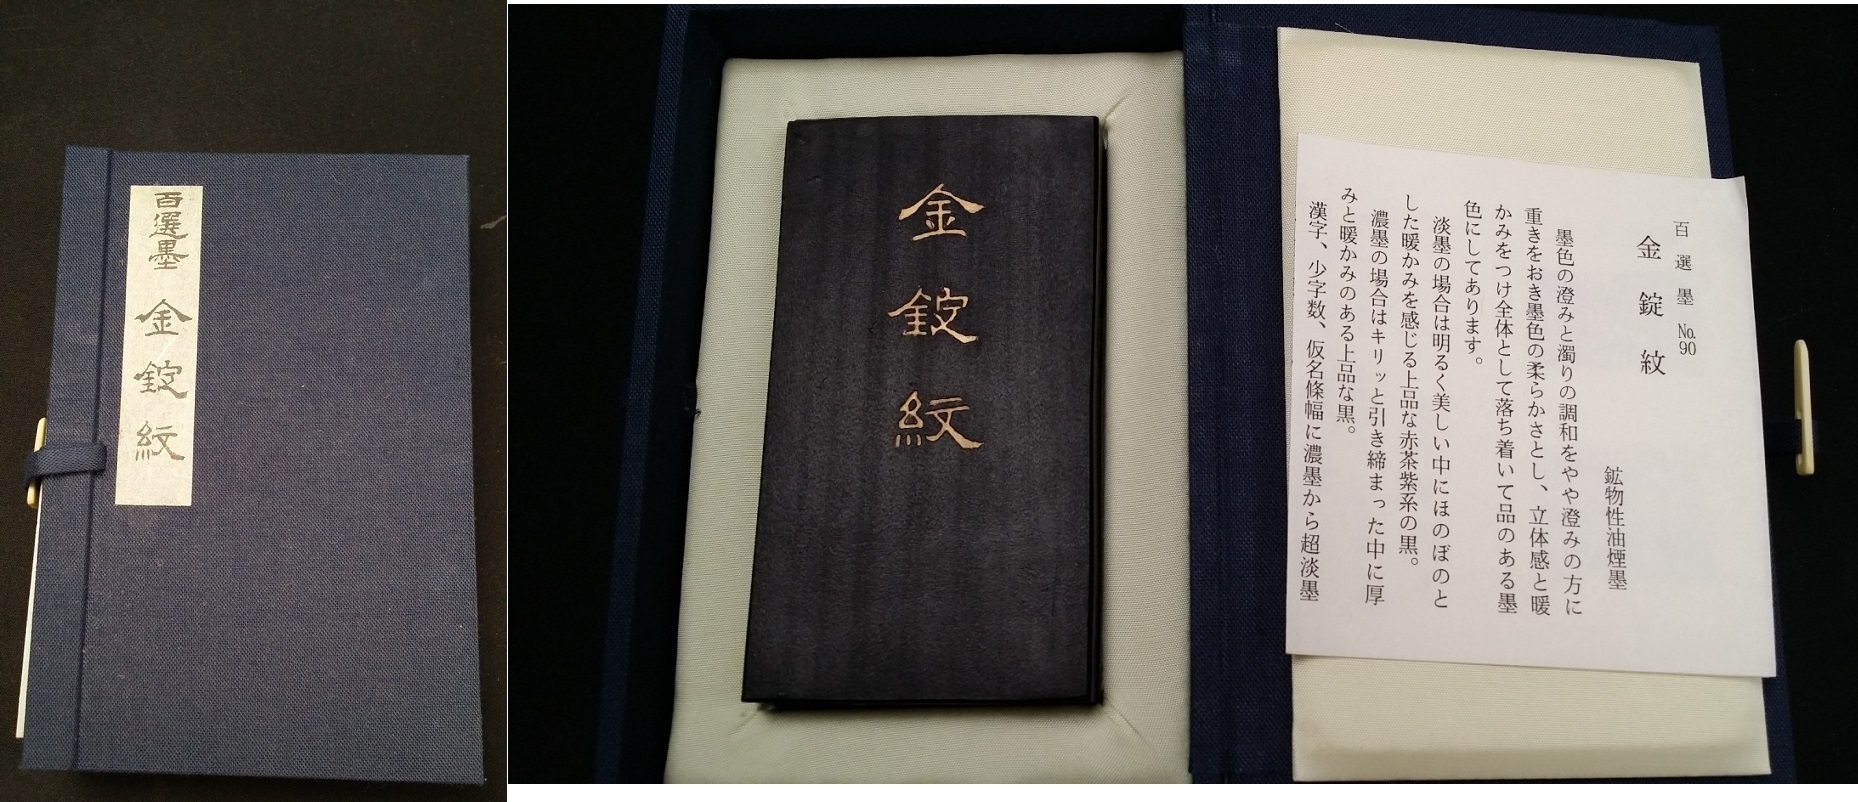 百選墨 金錠紋
金錠紋
百選墨 No.90
金錠紋
鉱物性油煙墨
墨色の澄みと濁りの調和をやや澄みの方に
重きをおき墨色の柔らかさとし、立体感と暖
かみをつけ全体として落ち着いて品のある墨
色にしてあります。
淡墨の場合は明るく美しい中にほのぼのと
した暖かみを感じる上品な赤茶紫系の黒。
濃墨の場合はキリッと引き締まった中に厚
みと暖かみのある上品な黒。
漢字、少字数、仮名條幅に濃墨から超淡墨